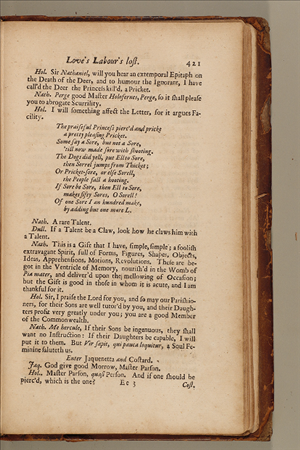 Love's Labour's lost. 421
Hol. Sir Nathaniel, will you hear an extemporal Epitaph on
the Death of the Deer, and to humour the Ignorant, I have
call'd the Deer the Princess kill'd, a Pricket.
Nath. Perge good Master Holofernes, Perge, so it shall please
you to abrogate Scurrility.
Hol. I will something affect the Letter, for it argues Fa-
cility.
The praiseful Princess pierc'd and prickt
a pretty pleasing Pricket.
Some say a Sore, but not a Sore,
'till now made sore with shooting.
The Dogs did yell, put Ell to Sore,
then Sorrel jumps from Thicket;
Or Pricket-sore, or else Sorell,
the People fall a hooting.
If Sore be Sore, then Ell to Sore,
makes fifty Sores, O Sorell!
Of one Sore I an hundred make,
by adding but one more L.
Nath. A rare Talent.
Dull. If a Talent be a Claw, look how he claws him with
a Talent.
Nath. This is a Gift that I have, simple, simple; a foolish
extravagant Spirit, full of Forms, Figures, Shapes, Objects,
Ideas, Apprehensions, Motions, Revolutions. These are be-
got in the Ventricle of Memory, nourish'd in the Womb of
Pia mater, and deliver'd upon the mellowing of Occasion;
but the Gift is good in those in whom it is acute, and I am
thankful for it.
Hol. Sir, I praise the Lord for you, and so may our Parishio-
ners, for their Sons are well tutor'd by you, and their Daugh-
ters profit very greatly under you; you are a good Member
of the Commonwealth.
Nath. Me hercule, If their Sons be ingenuous, they shall
want no Instruction: If their Daughters be capable, I will
put it to them. But Vir sapit, qui pauca loquitur, a Soul Fe-
minine saluteth us.
Enter Jaquenetta and Costard.
Jaq. God give good Morrow, Master Parson.
Hol. Master Parson, quasi Person. And if one should be
pierc'd, which is the one? Ee 3 Cost.